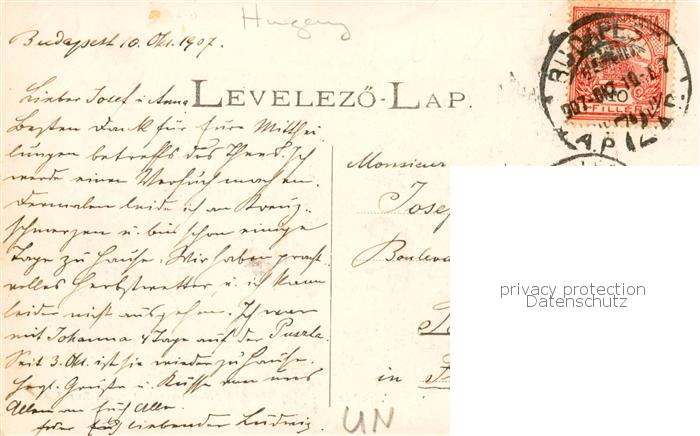 Hungary
Budapest 10. Okt. 1907.
Lieber Josef u. Anna
LEVELEZŐ-LAP.
Besten Dank für Eure Mitthei-
lungen betreffs des Thees. Ich
werde einen Versuch machen.
Dermalen leide ich an Kreuz-
schmerzen u. bin schon einige
Tage zu Hause. Wir haben pracht-
volles Herbstwetter, u. ich kann
leider nicht ausgehen. Ich war
mit Johanna 4 Tage auf der Puszta.
Seit 3. Okt. ist sie wieder zu Hause.
Herzl. Grüße u. Küsse von uns
Allen an Euch Alle.
Euer Euch liebender Ludwig.
Monsieur
Josef
Bouleva
in
UN
BUDAPEST
907 OKT 10
10
FILLER
privacy protection
Datenschutz